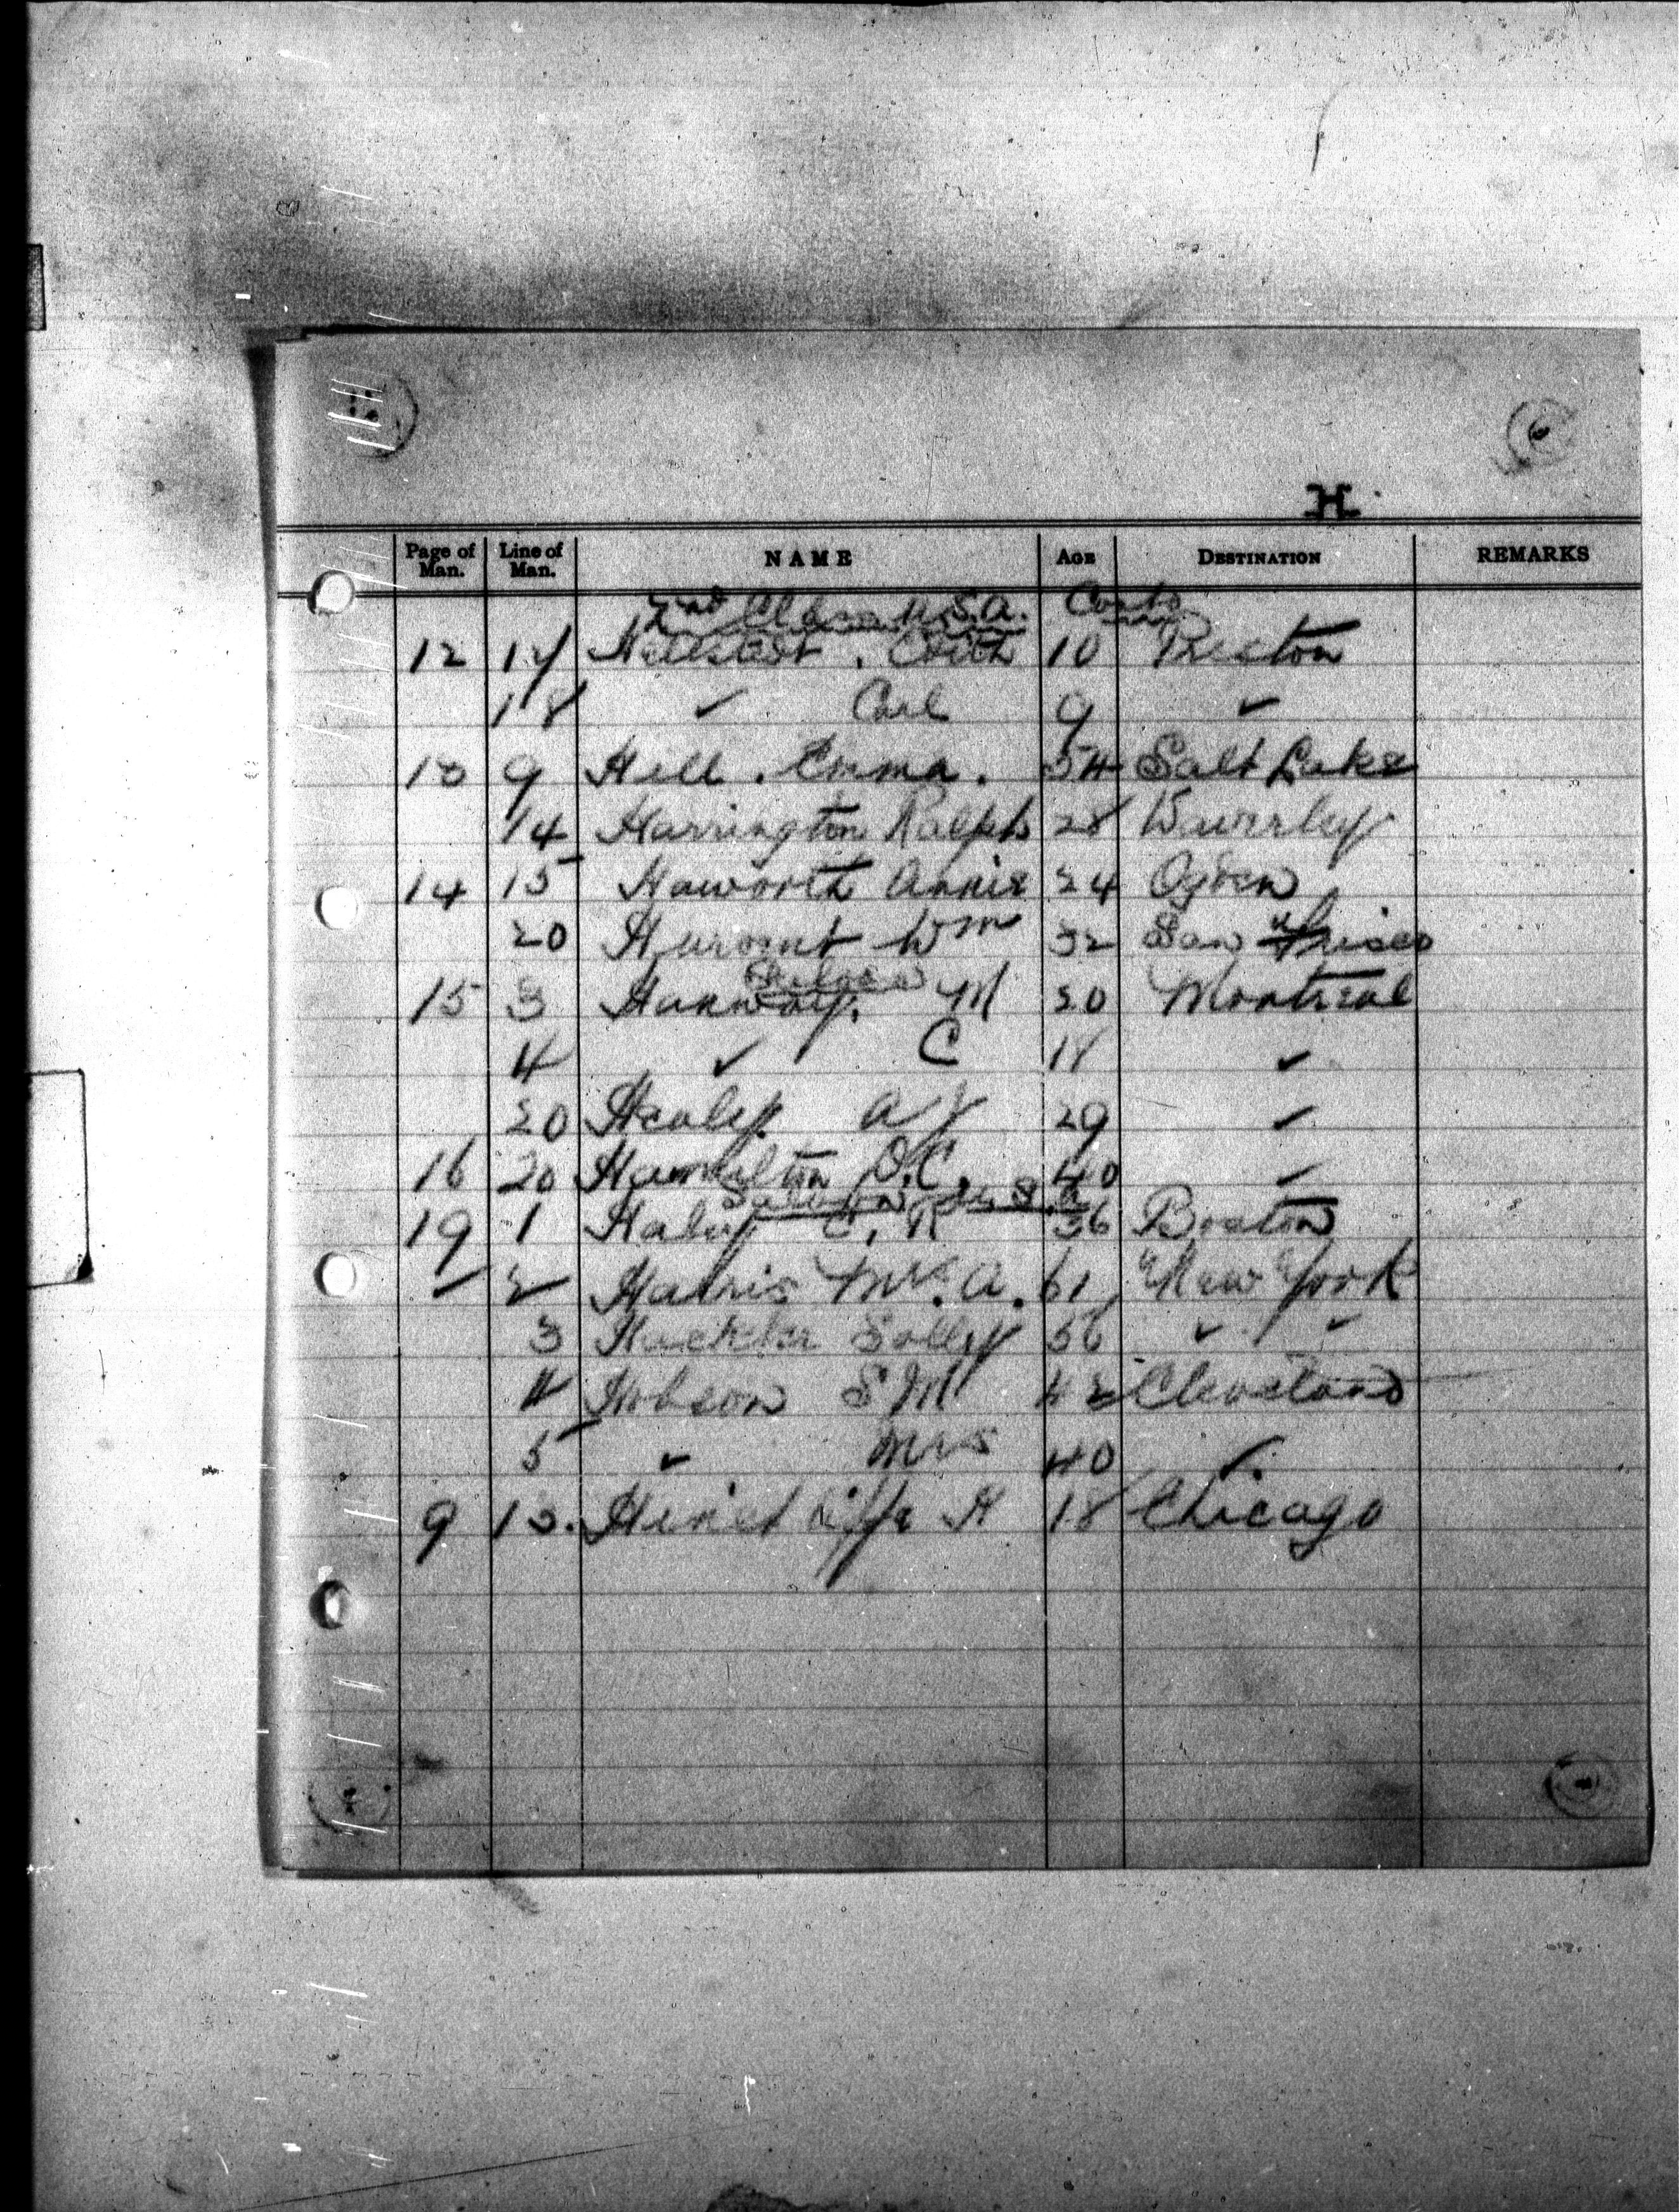 H.
Page of Man. Line of Man. NAME AGE DESTINATION REMARKS
2nd Class U.S.A. Contd
12 17 Hellstedt. Edith 10 Preston
18 ✓ Carl 9 ✓
13 9 Hill. Emma. 54 Salt Lake
14 Harrington Ralph 28 Waverley
14 15 Haworth Annie 24 Ogden
20 Wm 32 San Frisco
Saloon
15 3 Hanway. M 20 Montreal
4 ✓ C 18 ✓
20 Healy A J 29 ✓
16 20 Hamilton D.C. 40 ✓
Saloon U.S.A.
19 1 Haley C. R 36 Boston
2 Harris Mrs. A. 61 New York
3 Solly 56 ✓ ✓
4 Hobson S M 42 Cleveland
5 ✓ Mrs 40 ✓
9 13. Hinchliffe H 18 Chicago